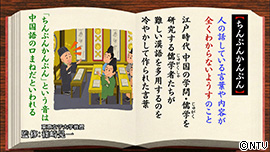 【ちんぷんかんぷん】
人の話している言葉や内容が
全くわからないようすのこと
江戸時代 中国の学問「儒学」を
研究する儒学者たちが
難しい漢語を多用するのを
冷やかして作られた言葉
「ちんぷんかんぷん」という音は
中国語の口まねだといわれる
©NTV